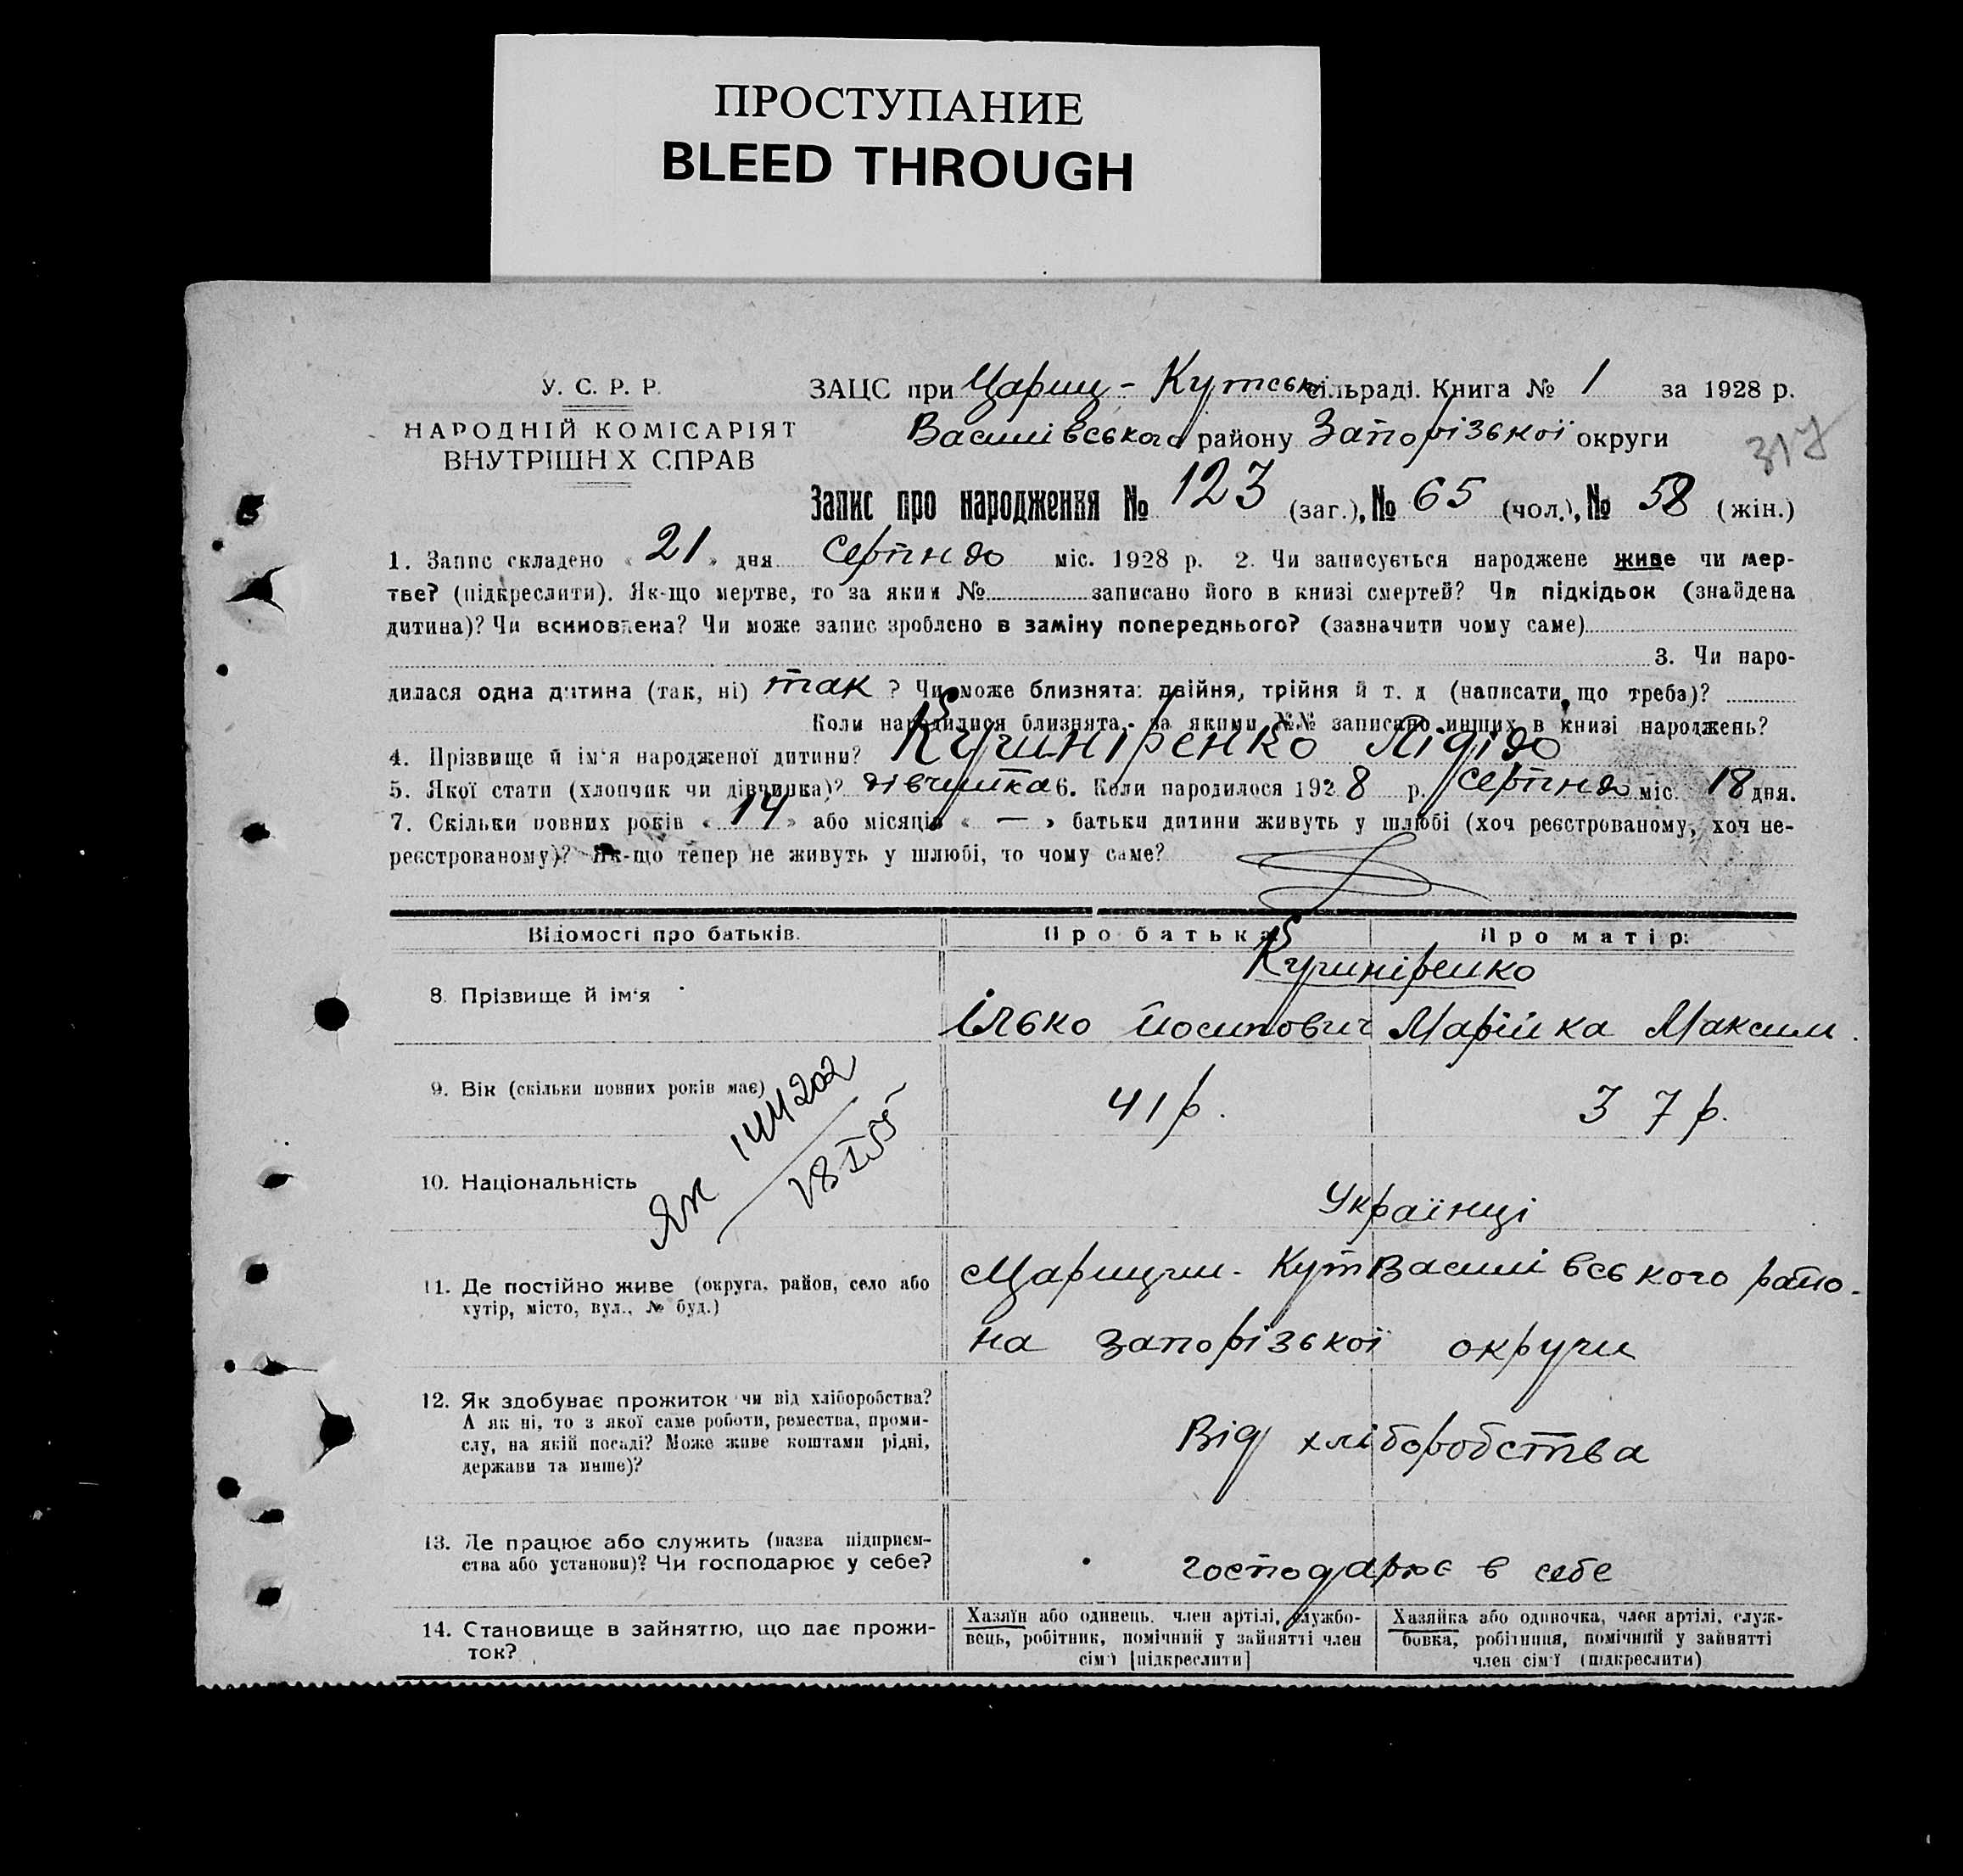 ПРОСТУПАНИЕ
BLEED THROUGH
У. С. Р. Р.
НАРОДНІЙ КОМІСАРІЯТ
ВНУТРІШН Х СПРАВ
ЗАЦС при Цариц - Кутськ сільраді. Книга № 1 за 1928 р.
Василівського району Запорізької округи
317
Запис про народження № 123 (заг.), № 65 (чол.), № 58 (жін.)
1. Запис складено « 21 » дня серпня міс. 1928 р. 2. Чи записується народжене живе чи мер-
тве? (підкреслити). Як-що мертве, то за яким № записано його в книзі смертей? Чи підкідьок (знайдена
дитина)? Чи всиновлена? Чи може запис зроблено в заміну попереднього? (зазначити чому саме)
3. Чи наро-
дилася одна дитина (так, ні) так ? Чи може близнята: двійня, трійня й т. д (написати, що треба)?
Коли народилися близнята, за якими №№ записано инших в книзі народжень?
4. Прізвище й ім'я народженої дитини? Кушніренко Лідія
5. Якої стати (хлопчик чи дівчинка)? дівчинка 6. Коли народилося 1928 р. серпня міс. 18 дня.
7. Скільки повних років « 14 » або місяців « — » батьки дитини живуть у шлюбі (хоч реєстрованому, хоч не-
реєстрованому)? Як-що тепер не живуть у шлюбі, то чому саме?
Відомості про батьків. Про батька Про матір:
Кушніренко
8. Прізвище й ім'я
Ілько Йосипович Марійка Максим.
9. Вік (скільки повних років має) 41 р. 37 р.
ЯЖ 144202
18 I 55
10. Національність Українці
11. Де постійно живе (округа, район, село або
хутір, місто, вул., № буд.)
Царицин-Кут Василівського райо-
на Запорізької округи
12. Як здобуває прожиток чи від хліборобства?
А як ні, то з якої саме роботи, ремества, проми-
слу, на якій посаді? Може живе коштами рідні,
держави та инше)?
Від хліборобства
13. Де працює або служить (назва підприєм-
ства або установи)? Чи господарює у себе?
господарює в себе
14. Становище в зайняттю, що дає прожи-
ток?
Хазяїн або одинець, член артілі, службо-
вець, робітник, помічний у зайнятті член
сім'ї [підкреслити]
Хазяйка або одиночка, член артілі, служ-
бовка, робітниця, помічний у зайнятті
член сім'ї (підкреслити)